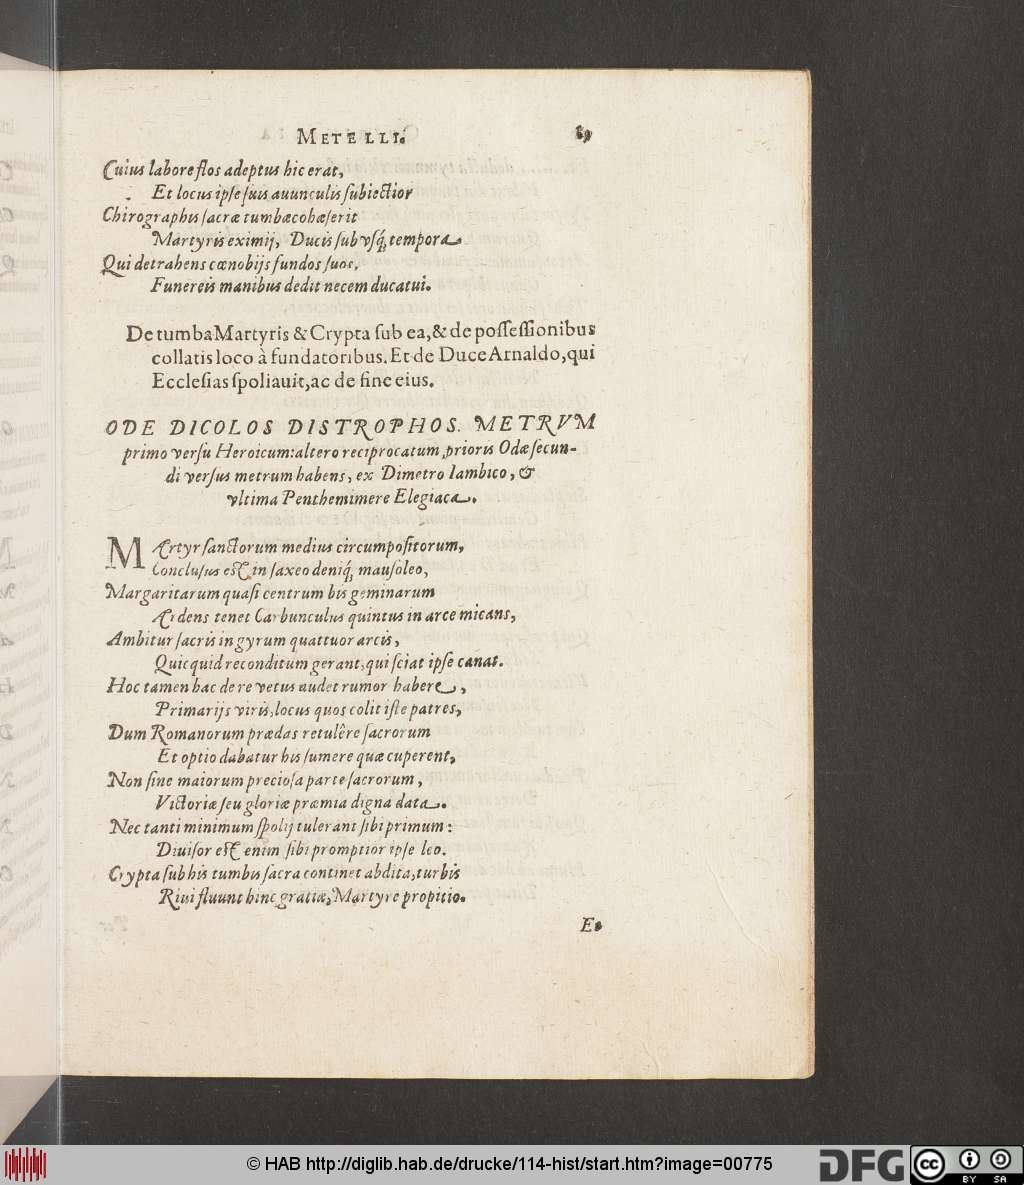 METELLI. 89
Cuius labore flos adeptus hic erat,
Et locus ipse suis auunculis subiectior
Chirographis sacræ tumbæ cohæserit
Martyris eximij, Ducis sub vsq́ tempora.
Qui detrahens cœnobijs fundos suos,
Funereis manibus dedit necem ducatui.
De tumba Martyris & Crypta sub ea, & de possessionibus
collatis loco à fundatoribus. Et de Duce Arnaldo, qui
Ecclesias spoliauit, ac de fine eius.
ODE DICOLOS DISTROPHOS. METRVM
primo versu Heroicum: altero reciprocatum, prioris Odæ secun-
di versus metrum habens, ex Dimetro Iambico, &
vltima Penthemimere Elegiaca.
MArtyr sanctorum medius circumpositorum,
Conclusus est in saxeo deniq́ mausoleo,
Margaritarum quasi centrum bis geminarum
Ardens tenet Carbunculus quintus in arce micans,
Ambitur sacris in gyrum quattuor arcis,
Quicquid reconditum gerant, qui sciat ipse canat.
Hoc tamen hac de re vetus audet rumor habere,
Primarijs viris, locus quos colit iste patres,
Dum Romanorum prædas retulêre sacrorum
Et optio dabatur his sumere quæ cuperent,
Non sine maiorum preciosa parte sacrorum,
Victoriæ seu gloriæ præmia digna data.
Nec tanti minimum spolij tulerant sibi primum:
Diuisor est enim sibi promptior ipse leo.
Crypta sub his tumbis sacra continet abdita, turbis
Riui fluunt hinc gratiæ, Martyre propitio.
E
© HAB http://diglib.hab.de/drucke/114-hist/start.htm?image=00775
DFG
cc BY SA